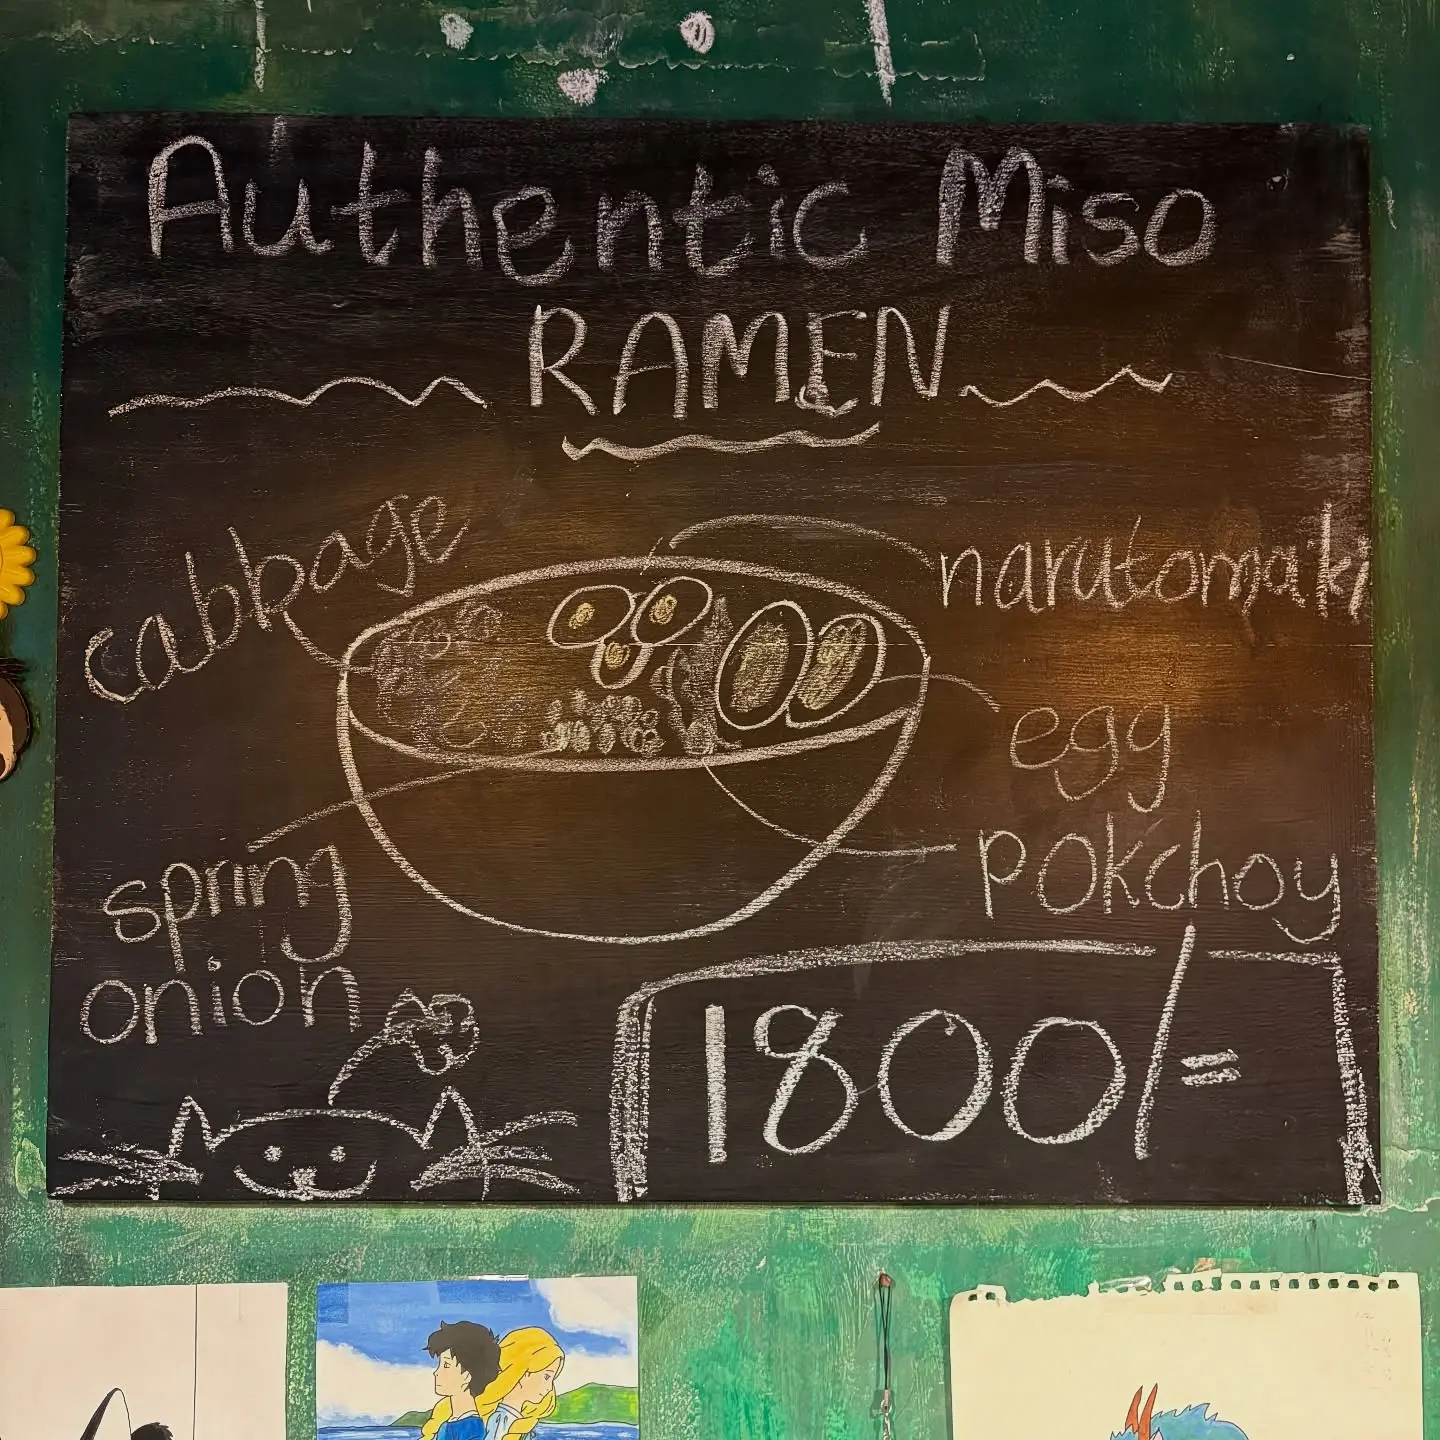 Authentic Miso
RAMEN
cabbage
narutomaki
egg
spring
onion
Pokchoy
1800/=